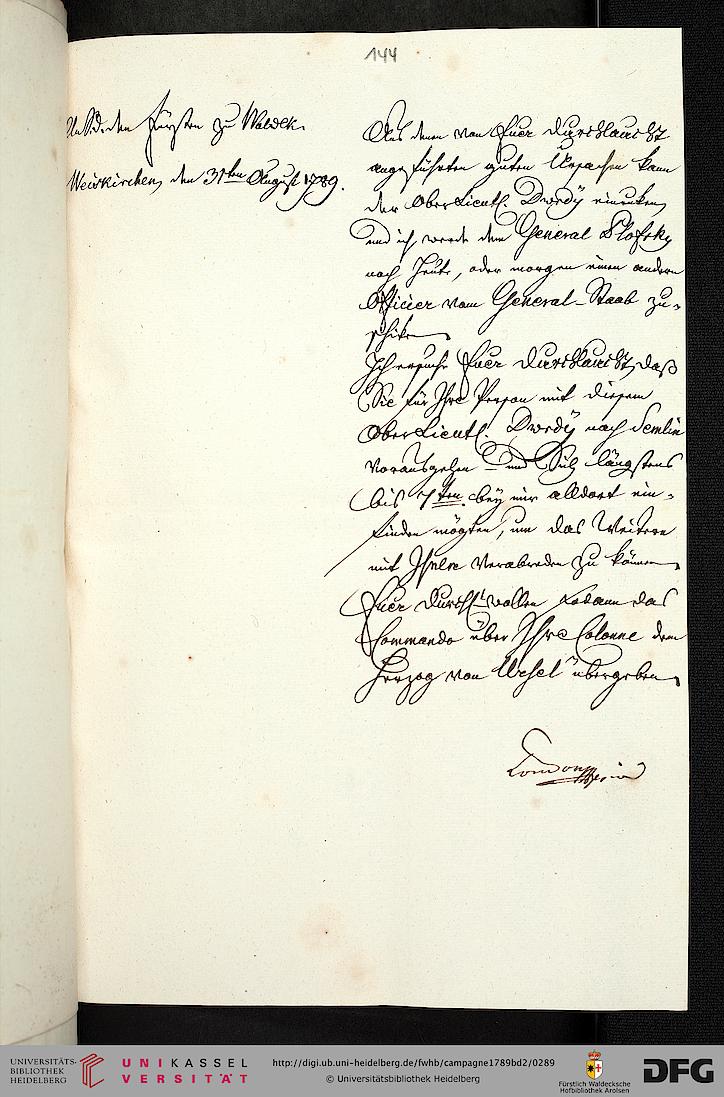 144
An S.d. den Fürsten zu Waldek.
Weiskirchen, den 31ten August 1789.
Aus denen von Euer Durchlaucht
angeführten guten Ursachen kann
der Obrer Lieutt. Dwedÿ einruken,
und ich werde dem General
noch heute, oder morgen einen andern
Officier vom General-Staab zu-
schiken.
Ich ersuche Euer Durchlaucht, daß
Sie für Ihre Person mit diesem
Ober Lieutt. Dwedÿ nach Semlin
vorausgehen und Sich längstens
bis 4ten bey mir alldort ein-
finden mögten, um das Weitere
mit Ihnen verabreden zu können.
Euer Durchlt. wollen sodann das
Commando über Ihre Colonne dem
Herzog von Ursel übergeben.
Loudon
UNIVERSITÄTS-
BIBLIOTHEK
HEIDELBERG
UNIKASSEL
VERSITÄT
http://digi.ub.uni-heidelberg.de/fwhb/campagne1789bd2/0289
© Universitätsbibliothek Heidelberg
Fürstlich Waldecksche
Hofbibliothek Arolsen
DFG